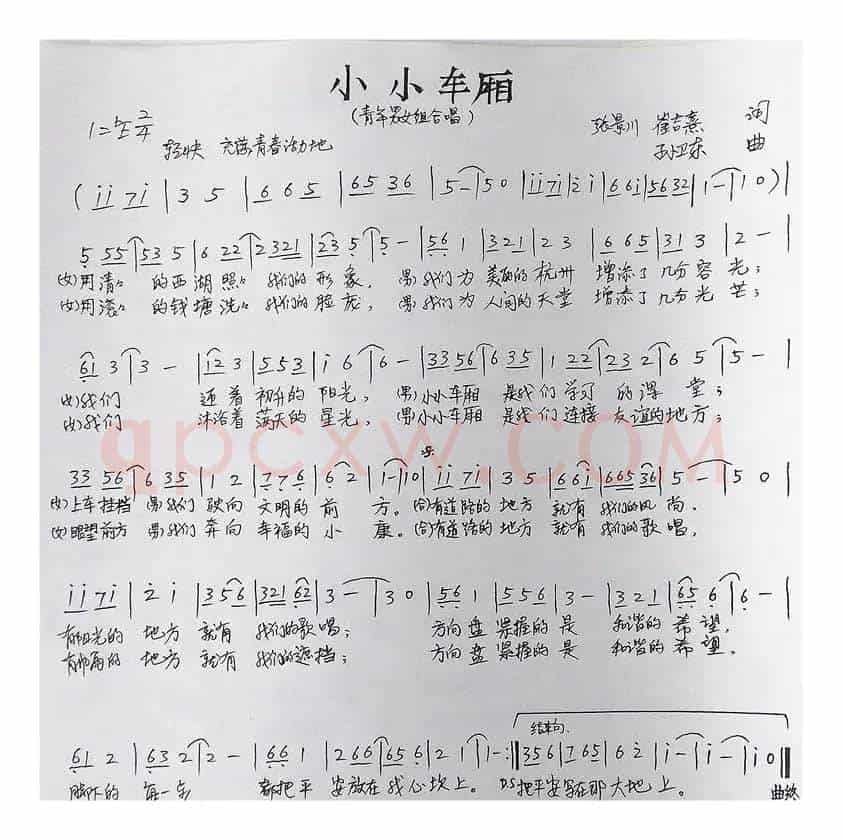 小小车厢
(青年男女组合唱)
1=♭E 2/4
张景川 崔吉熹 词
轻快 充满青春活力地
孙卫东 曲
(i i 7 i | 3 5 | 6 6 5 | 65 36 | 5 - | 5 0 | i i 7 i | 2 i | 6 6 i | 56 32 | 1 - | 1 0) |
5 55 | 53 5 | 6 22 | 2 321 | 23 5 | 5 - | 56 1 | 321 | 2 3 | 6 6 5 | 31 3 | 2 - |
(女)用清清的西湖照照我们的形象, (男)我们为美丽的杭州 增添了几分容光;
(女)用滚滚的钱塘洗洗我们的脸庞, (男)我们为人间的天堂 增添了几分光芒;
61 3 | 3 - | 12 3 | 553 | i 6 | 6 - | 33 56 | 6 35 | 1 22 | 23 2 | 6 5 | 5 - |
(女)我们 迎着初升的阳光, (男)小小车厢 是我们学习的课堂;
(女)我们 沐浴着满天的星光, (男)小小车厢 是我们连接友谊的地方;
33 56 | 6 35 | 1 2 | 776 | 6 2 | 1 - | 1 0 | i i 7 i | 3 5 | 66 i | 665 36 | 5 - | 5 0
(女)上车挂挡 (男)我们驶向文明的前方。(合)有道路的地方 就有我们的风尚,
(女)眺望前方 (男)我们奔向幸福的小康。(合)有道路的地方 就有我们的歌唱,
i i 7 i | 2 i | 356 | 321 62 | 3 - | 3 0 | 56 1 | 556 | 3 - | 321 | 65 6 | 6 - |
有阳光的地方 就有我们的歌唱; 方向盘紧握的是 和谐的希望,
有风雨的地方 就有我们的遮挡; 方向盘紧握的是 和谐的希望。
61 2 | 63 2 | 2 - | 66 1 | 266 | 65 6 | 2 1 | 1 - :‖ 结束句 356 | 765 | 6 2 | i - | i - | i 0 ‖
脚下的 每一步 都把平安放在我心坎上。 D.S把平安写在那大地上。
曲终
qpcxw.COM